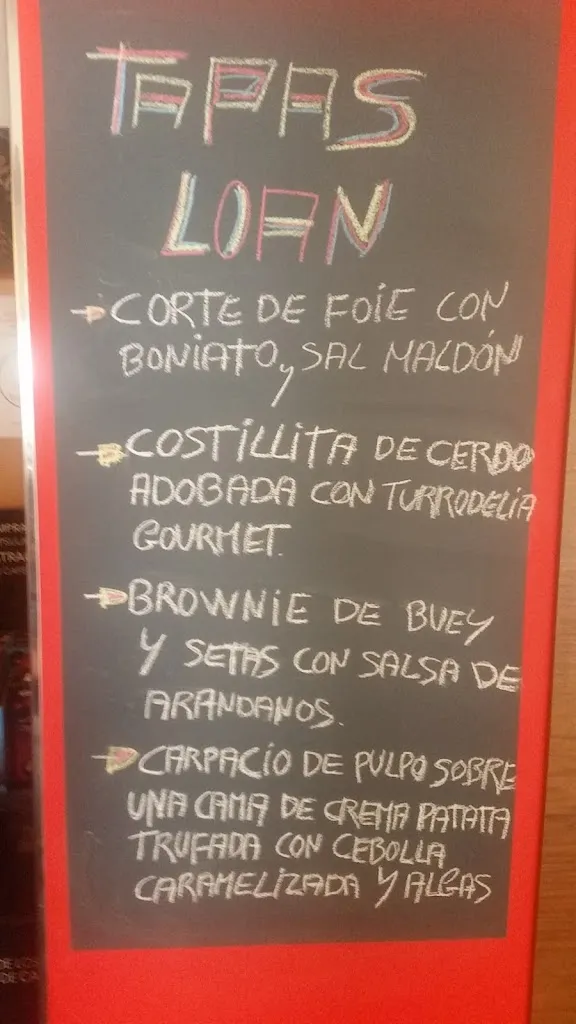 TAPAS
LOAN
CORTE DE FOIE CON
BONIATO y SAL MALDÓN
COSTILLITA DE CERDO
ADOBADA CON TURRODELIA
GOURMET.
BROWNIE DE BUEY
Y SETAS CON SALSA DE
ARANDANOS.
CARPACIO DE PULPO SOBRE
UNA CAMA DE CREMA PATATA
TRUFADA CON CEBOLLA
CARAMELIZADA Y ALGAS